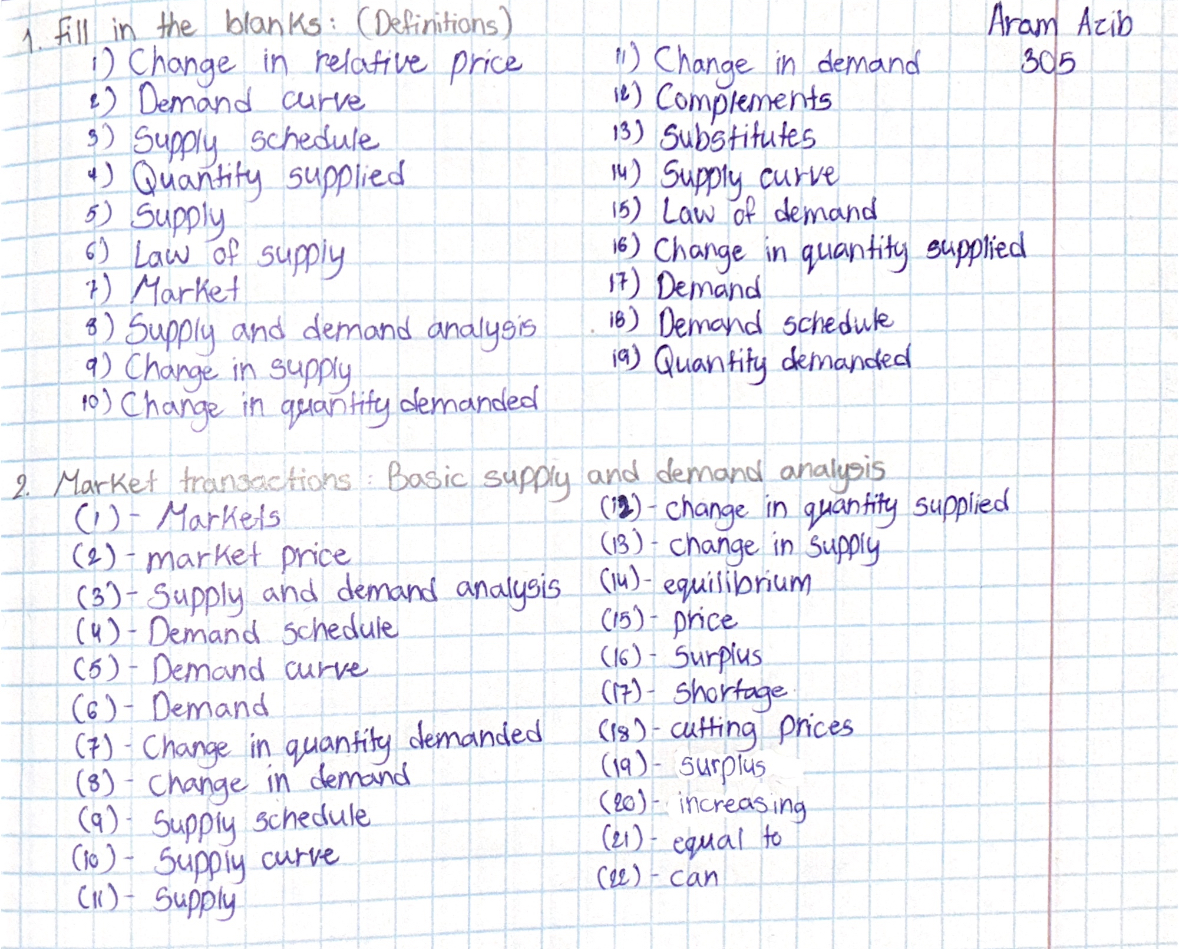 1. Fill in the blanks: (Definitions)
Aram Azib
305
1) Change in relative price
2) Demand curve
3) Supply schedule
4) Quantity supplied
5) Supply
6) Law of supply
7) Market
8) Supply and demand analysis
9) Change in supply
10) Change in quantity demanded
11) Change in demand
12) Complements
13) Substitutes
14) Supply curve
15) Law of demand
16) Change in quantity supplied
17) Demand
18) Demand schedule
19) Quantity demanded
2. Market transactions: Basic supply and demand analysis
(1) - Markets
(2) - market price
(3) - Supply and demand analysis
(4) - Demand schedule
(5) - Demand curve
(6) - Demand
(7) - Change in quantity demanded
(8) - Change in demand
(9) - Supply schedule
(10) - Supply curve
(11) - Supply
(12) - change in quantity supplied
(13) - change in supply
(14) - equilibrium
(15) - price
(16) - Surplus
(17) - Shortage
(18) - cutting prices
(19) - surplus
(20) - increasing
(21) - equal to
(22) - can